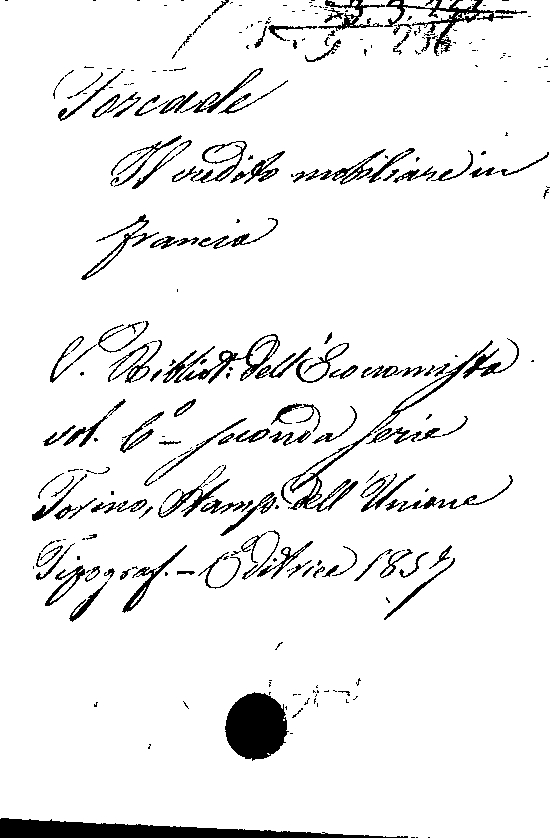 K. G. 236
Forcade
Il credito mobiliare in
francia
V. Bibliot: dell'Economista
vol. 6º - seconda serie
Torino, Stamp. dell'Unione
Tipograf. - Editrice 1857